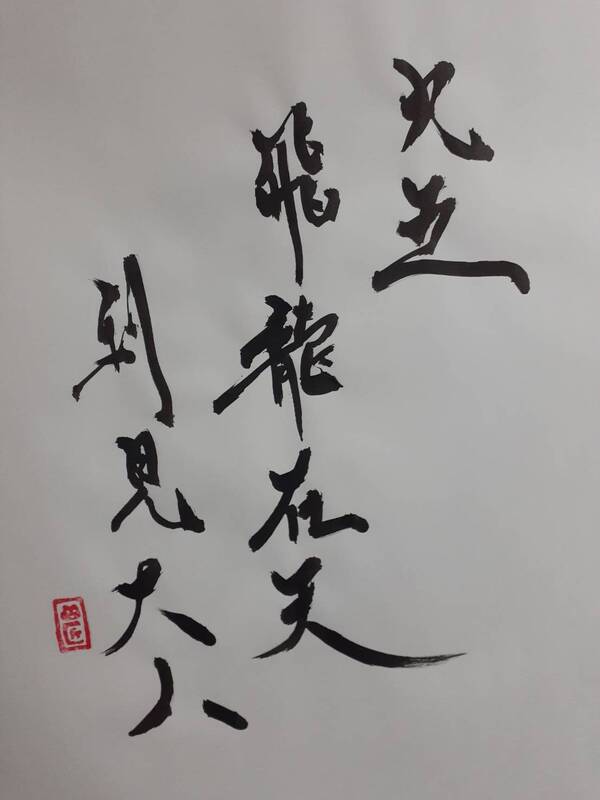 九五
飛龍在天
利見大人